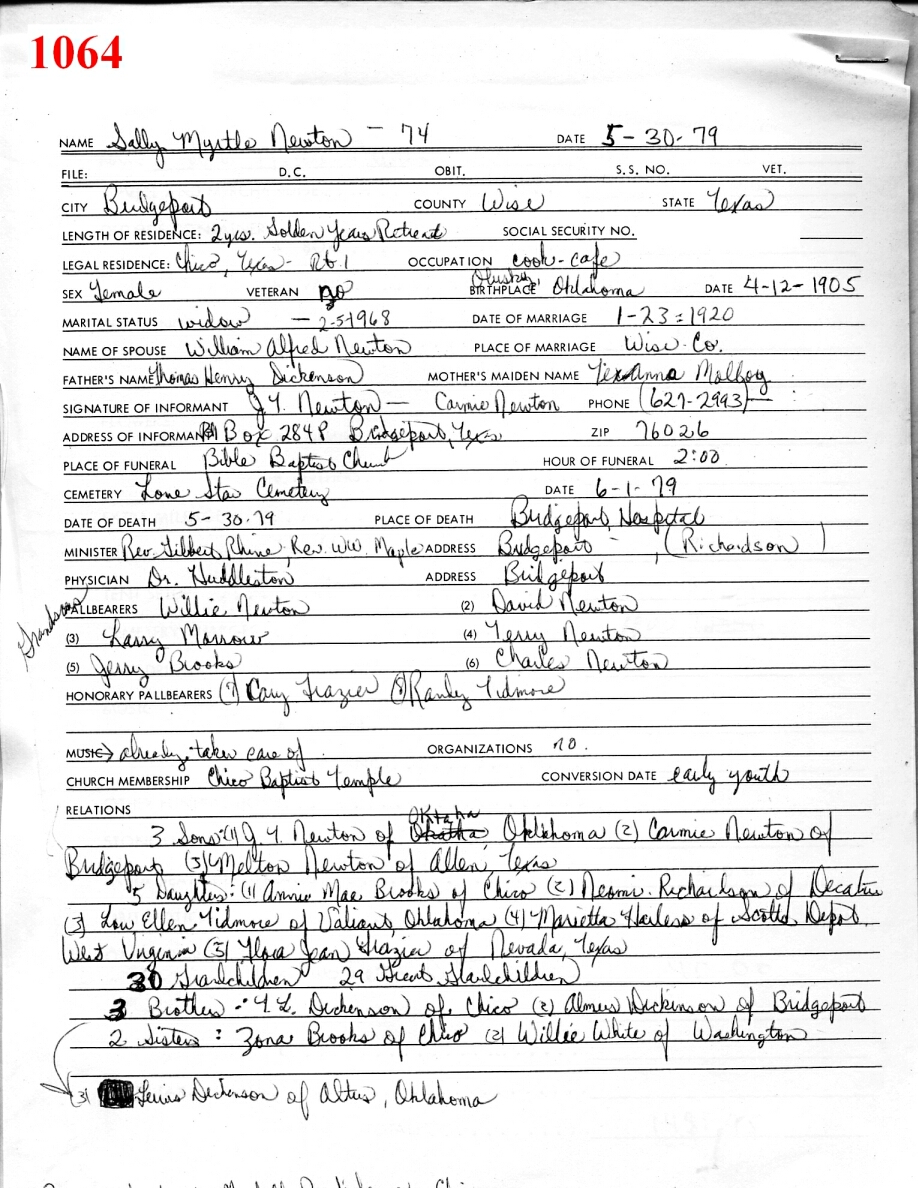 1064
NAME Sally Myrtle Newton - 74 DATE 5-30-79
FILE: D.C. OBIT. S.S. NO. VET.
CITY Bridgeport COUNTY Wise STATE Texas
LENGTH OF RESIDENCE: 2 yrs. Golden Years Retreat SOCIAL SECURITY NO.
LEGAL RESIDENCE: Chico, Texas - Rt. 1 OCCUPATION cook - cafe
SEX Female VETERAN no BIRTHPLACE Olustry, Oklahoma DATE 4-12-1905
MARITAL STATUS widow - 2-5-1968 DATE OF MARRIAGE 1-23-1920
NAME OF SPOUSE William Alfred Newton PLACE OF MARRIAGE Wise Co.
FATHER'S NAME Thomas Henry Dickenson MOTHER'S MAIDEN NAME TexAnna
SIGNATURE OF INFORMANT J.Y. Newton - Carmie Newton PHONE (627-2993)
ADDRESS OF INFORMANT Box 284P Bridgeport, Texas ZIP 76026
PLACE OF FUNERAL Bible Baptist Church HOUR OF FUNERAL 2:00
CEMETERY Lone Star Cemetery DATE 6-1-79
DATE OF DEATH 5-30-79 PLACE OF DEATH Bridgeport Hospital
MINISTER Rev. Gilbert Rhine, Rev. W.W. Maple ADDRESS Bridgeport, (Richardson)
PHYSICIAN Dr. Huddleston ADDRESS Bridgeport
Grandsons
PALLBEARERS Willie Newton (2) David Newton
(3) Larry Morrow (4) Terry Newton
(5) Jerry Brooks (6) Charles Newton
HONORARY PALLBEARERS (7) Cary Frazier (8) Randy Tidmore
MUSIC already taken care of ORGANIZATIONS no.
CHURCH MEMBERSHIP Chico Baptist Temple CONVERSION DATE early youth
RELATIONS
3 Sons: (1) J.Y. Newton of Oktaha Oklahoma (2) Carmie Newton of
Bridgeport (3) Melton Newton of Allen, Texas
5 Daughters: (1) Annie Mae Brooks of Chico (2) Neomi Richardson of Decatur
(3) Lou Ellen Tidmore of Valiant, Oklahoma (4) Marietta Harless of Scotts Depot,
West Virginia (5) Flora Jean Frazier of Nevada, Texas
30 Grandchildren 29 Great Grandchildren
3 Brothers: Y.L. Dickenson of Chico (2) Almus Dickinson of Bridgeport
2 Sisters: Zona Brooks of Chico (2) Willie White of Washington
(3) Lewis Dickenson of Altus, Oklahoma